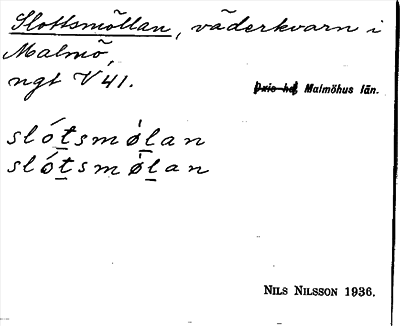 Slottsmöllan, väderkvarn i
Malmö,
ngt V 41.
Oxie hd, Malmöhus län.
slótsmø̍lan
slótsmø̍lan
NILS NILSSON 1936.